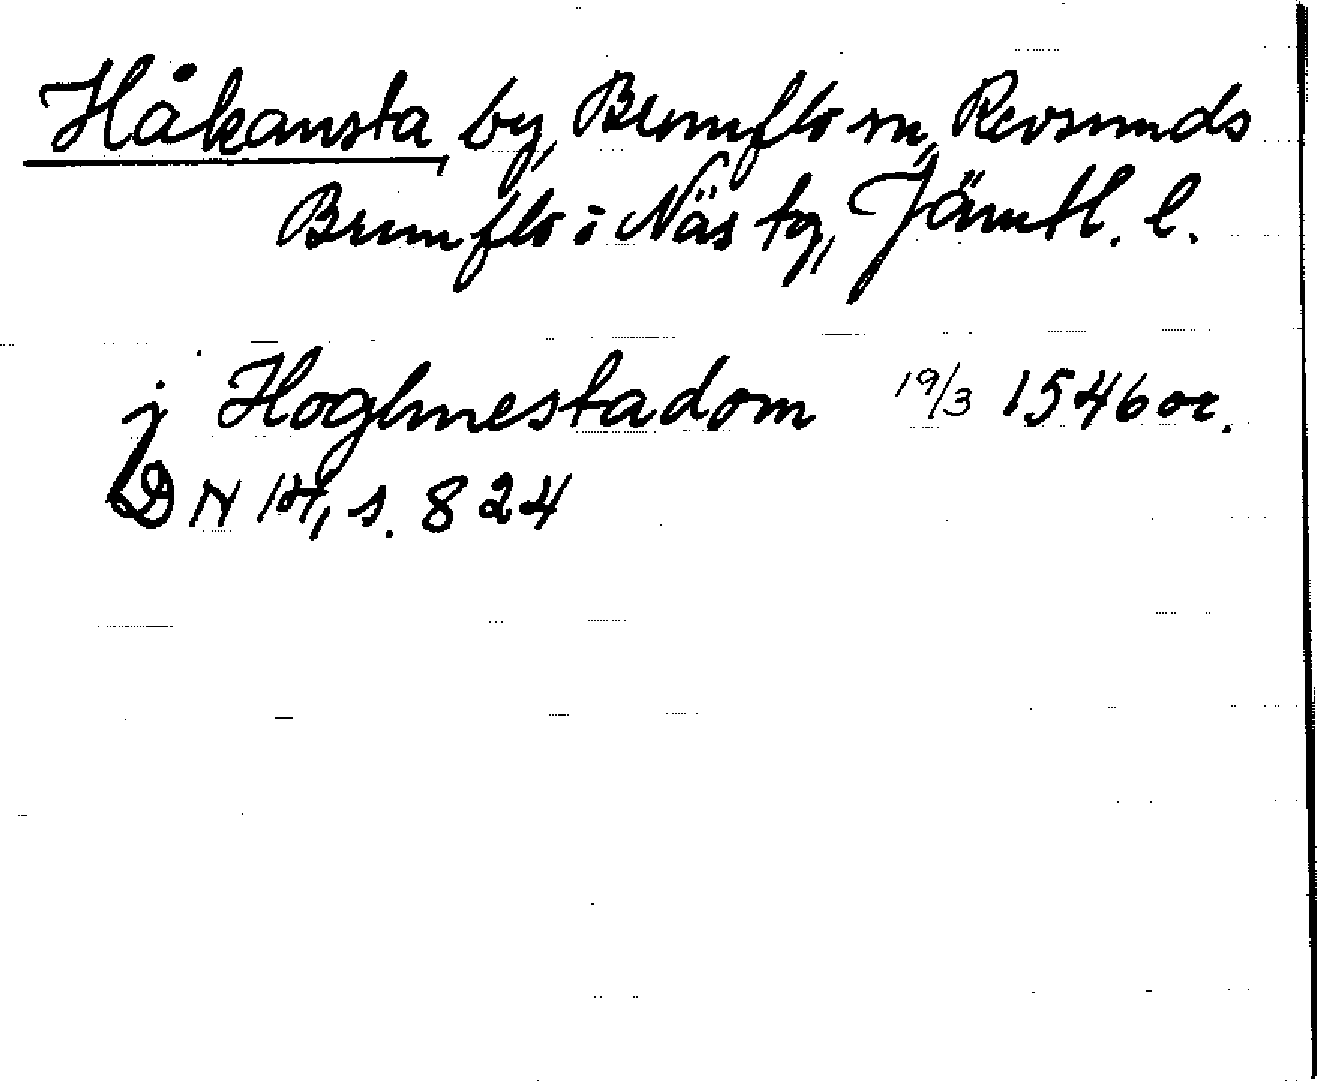 Håkansta, by, Brunflo sn, Revsunds
Brunflo i Näs tg, Jämtl. l.
j Hoghnestadom 19/3 1546 or.
DN 14, s. 824